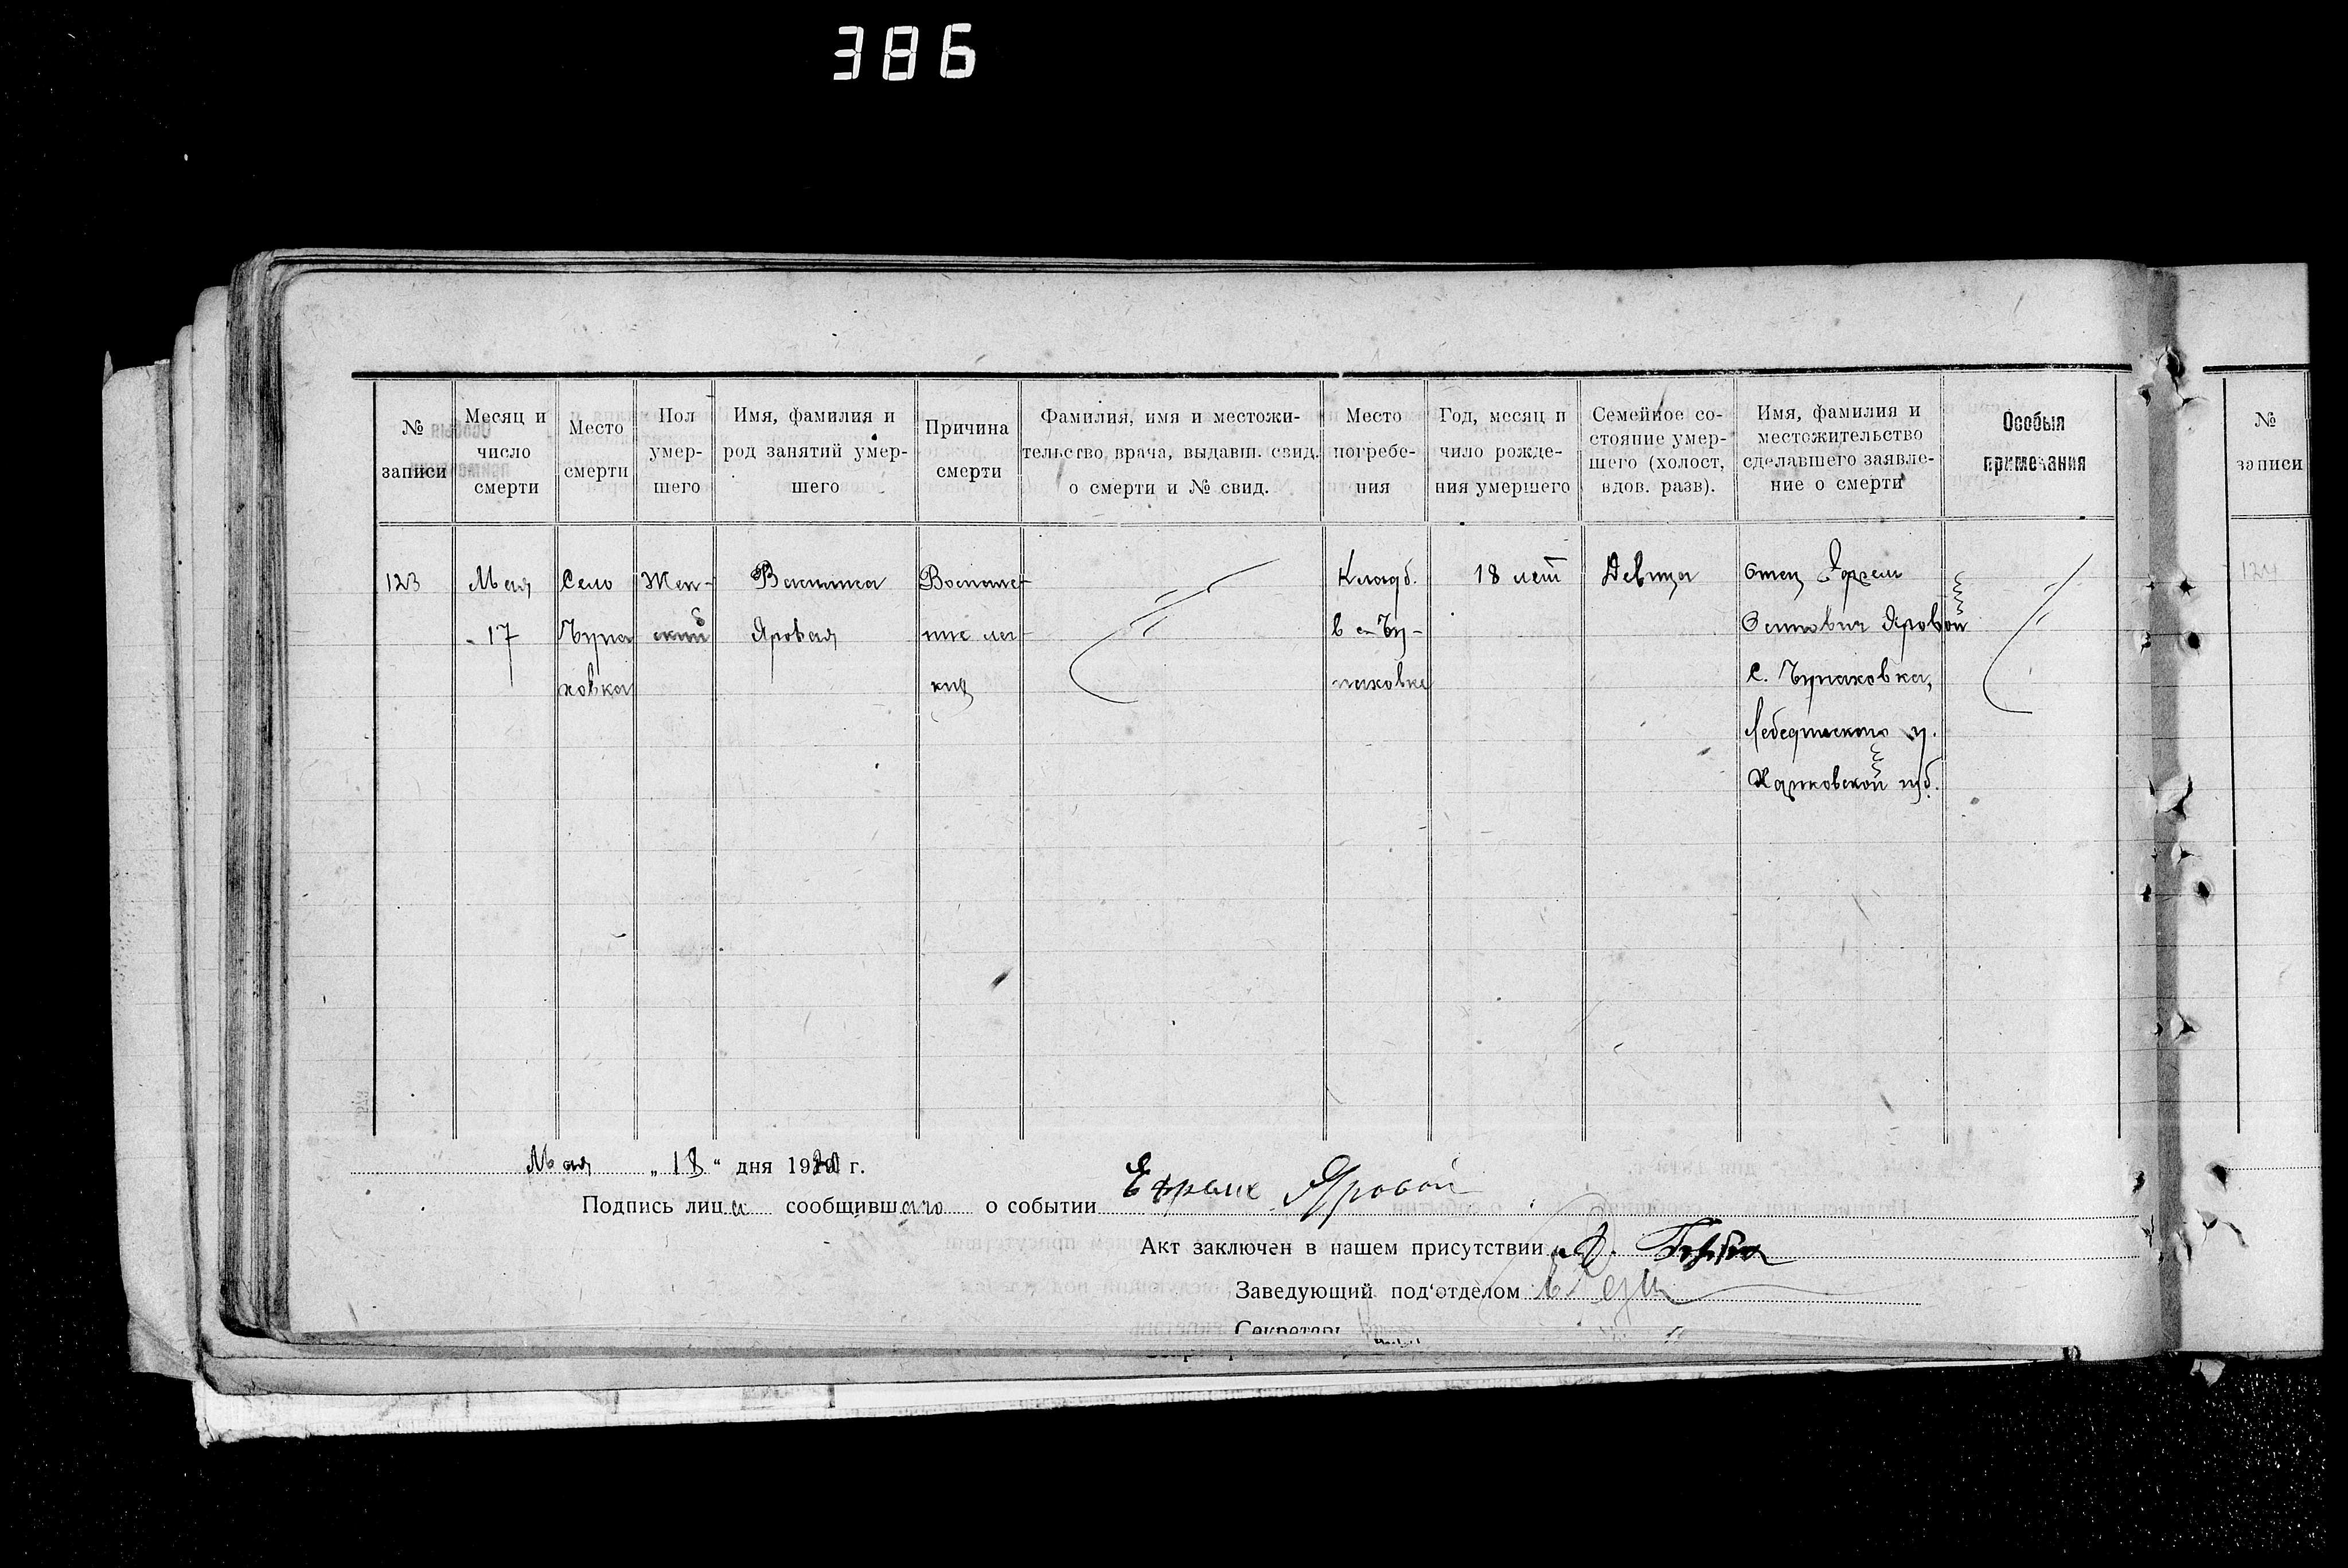 386
№ записи
Месяц и число смерти
Место смерти
Пол умер-шего
Имя, фамилия и род занятий умер-шего
Причина смерти
Фамилия, имя и местожи-тельство врача, выдавш. свид. о смерти и № свид.
Место погребе-ния
Год, месяц и чило рожде-ния умершего
Семейное со-стояние умер-шего (холост, вдов. разв).
Имя, фамилия и местожительство сделавшего заявле-ние о смерти
Особыя примечания
№ записи
123
Мая
17
Село
Чупа
ховка
Жен-
ский
Яровая
Воспале-
ние лег-
ких
Кладб.
в с. Чу-
паховке
18 лет
Девица
Отец Ефрем
Осипович Яровой
с. Чупаховка,
Лебединского у.
Харковской губ.
124
Мая „18“ дня 1920 г.
Подпись лица сообщившаго о событии Ефрем Яровой
Акт заключен в нашем присутствии
Заведующий под‘отделом
Секретарь